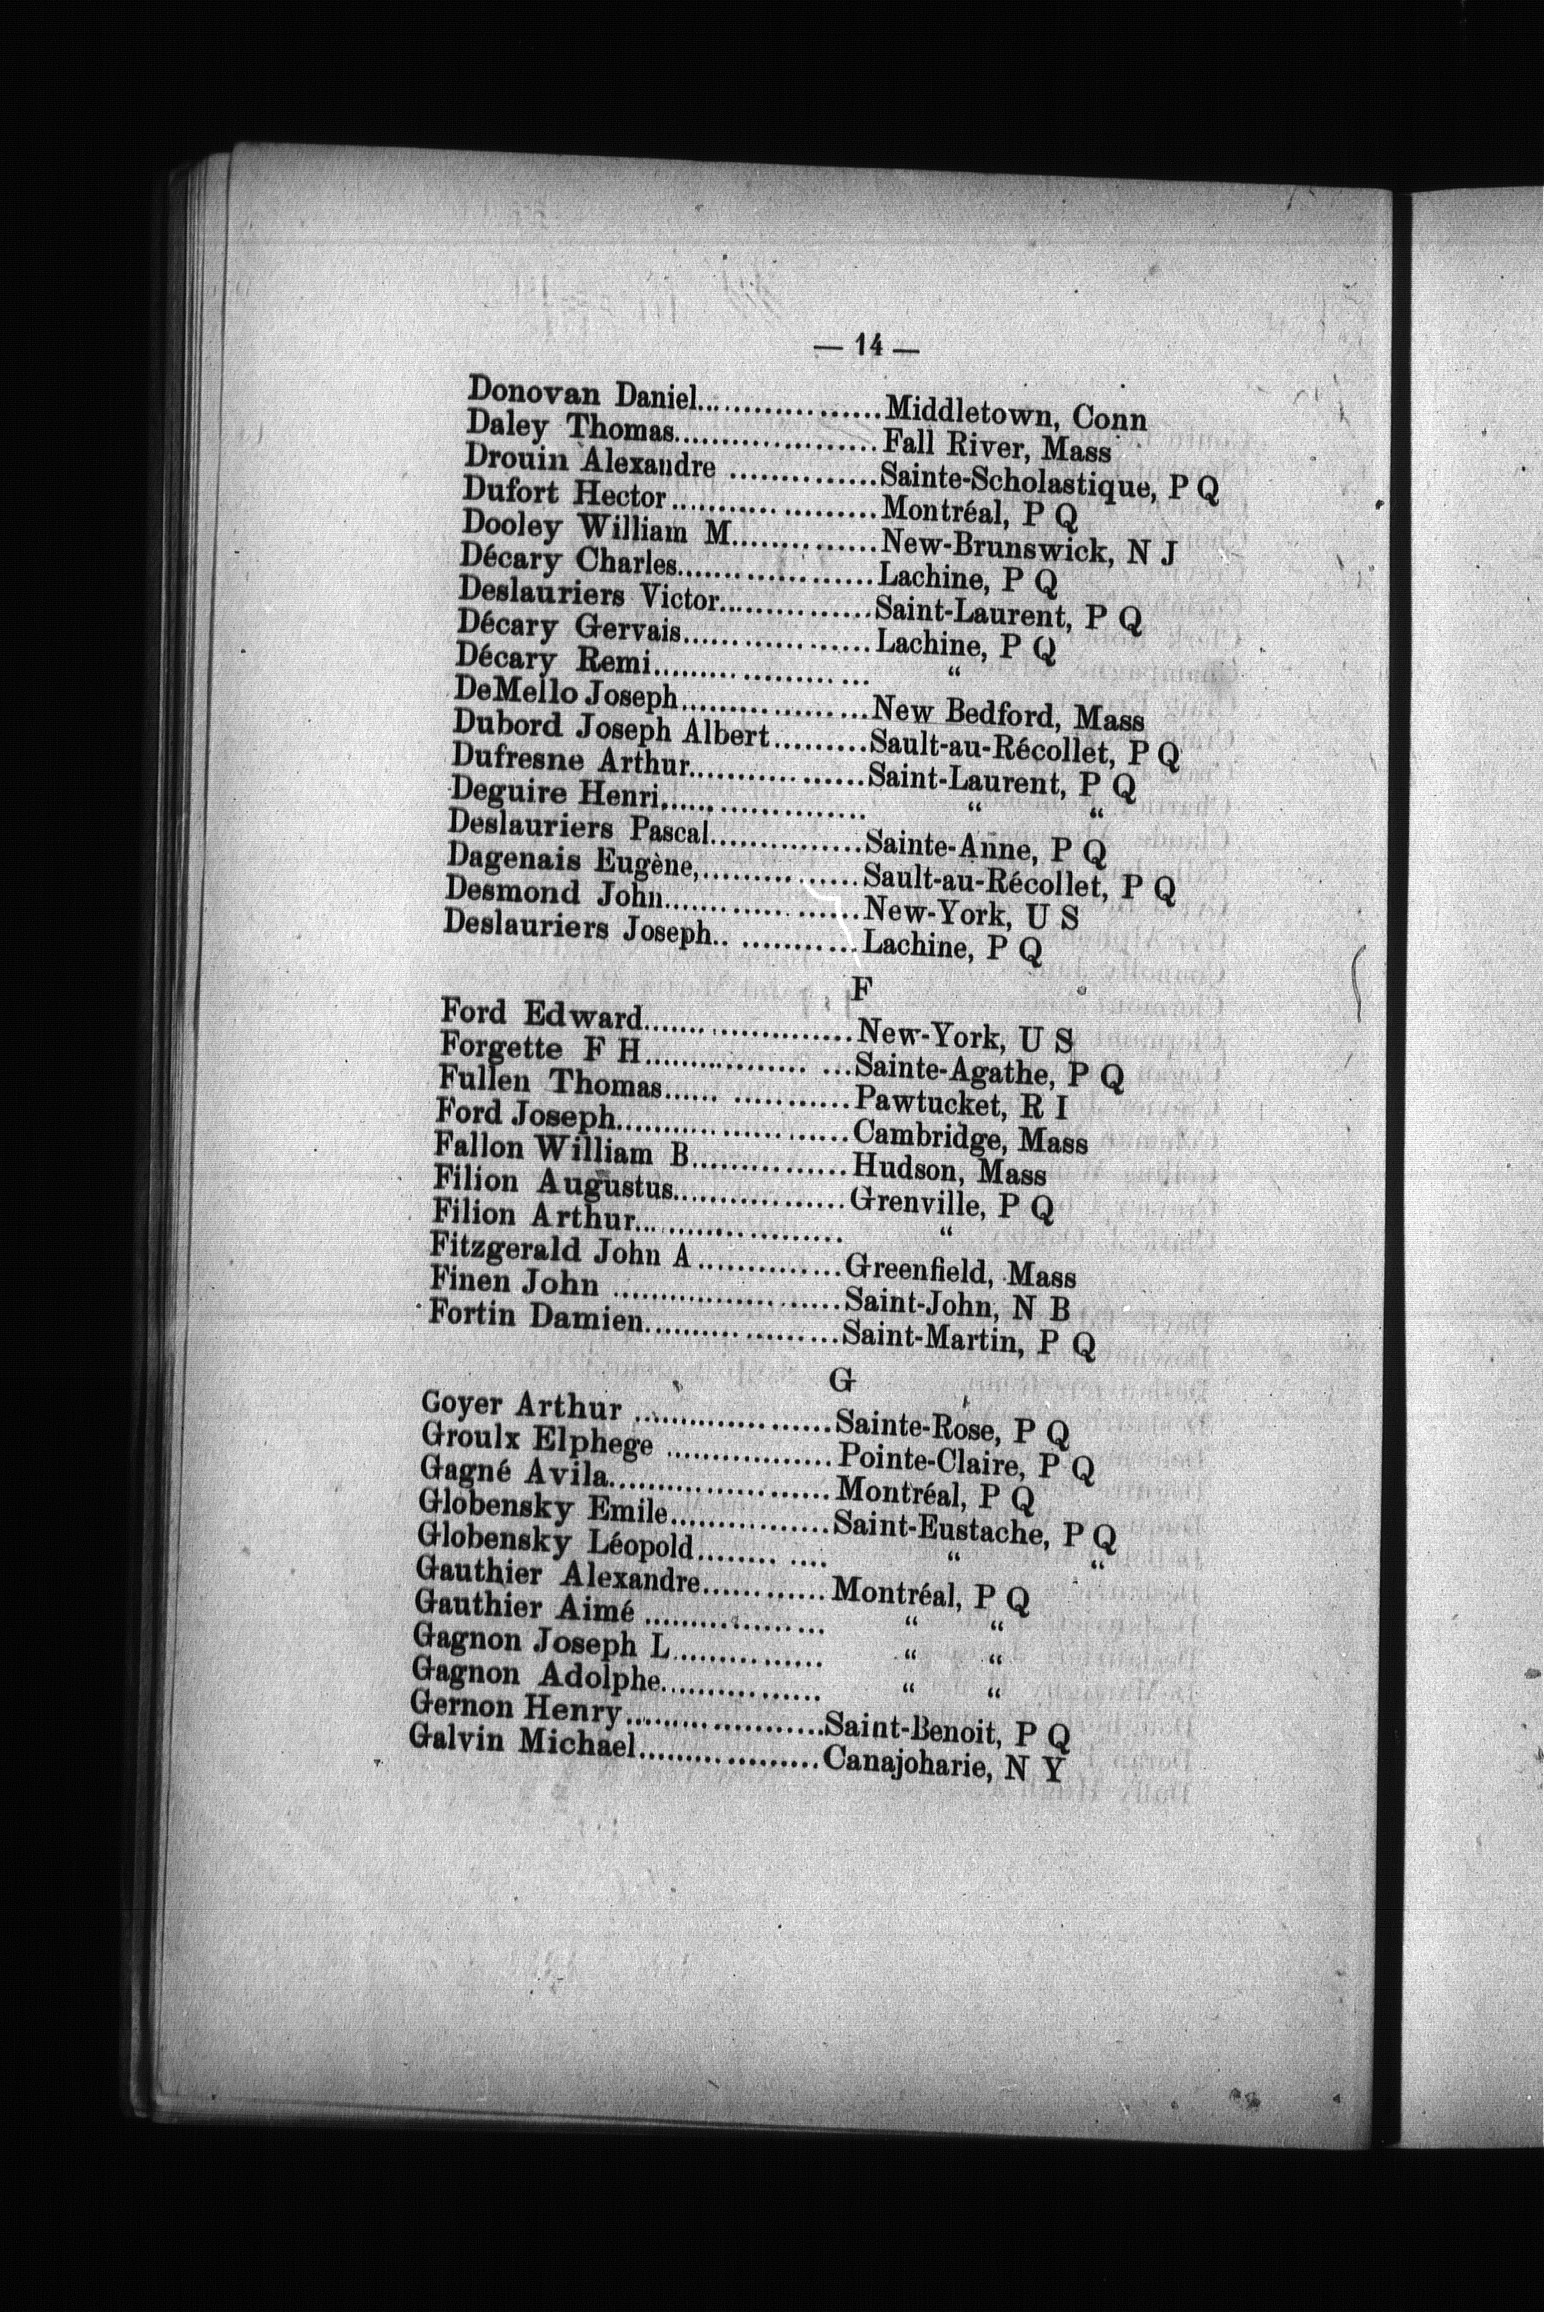 — 14 —
Donovan Daniel..................Middletown, Conn
Daley Thomas....................Fall River, Mass
Drouin Alexandre ...............Sainte-Scholastique, P Q
Dufort Hector ....................Montréal, P Q
Dooley William M...............New-Brunswick, N J
Décary Charles...................Lachine, P Q
Deslauriers Victor...............Saint-Laurent, P Q
Décary Gervais..................Lachine, P Q
Décary Remi...................... “
DeMello Joseph..................New Bedford, Mass
Dubord Joseph Albert.........Sault-au-Récollet, P Q
Dufresne Arthur.................Saint-Laurent, P Q
Deguire Henri..................... “ “
Deslauriers Pascal...............Sainte-Anne, P Q
Dagenais Eugène,...............Sault-au-Récollet, P Q
Desmond John...................New-York, U S
Deslauriers Joseph.. ...........Lachine, P Q
F
Ford Edward.....................New-York, U S
Forgette F H................. ...Sainte-Agathe, P Q
Fullen Thomas...... ...........Pawtucket, R I
Ford Joseph.......................Cambridge, Mass
Fallon William B...............Hudson, Mass
Filion Augustus.................Grenville, P Q
Filion Arthur..................... “
Fitzgerald John A ..............Greenfield, Mass
Finen John .......................Saint-John, N B
Fortin Damien...................Saint-Martin, P Q
G
Goyer Arthur ....................Sainte-Rose, P Q
Groulx Elphege .................Pointe-Claire, P Q
Gagné Avila......................Montréal, P Q
Globensky Emile................Saint-Eustache, P Q
Globensky Léopold........ .... “ “
Gauthier Alexandre............Montréal, P Q
Gauthier Aimé .................. “ “
Gagnon Joseph L............... “ “
Gagnon Adolphe................ “ “
Gernon Henry....................Saint-Benoit, P Q
Galvin Michael..................Canajoharie, N Y